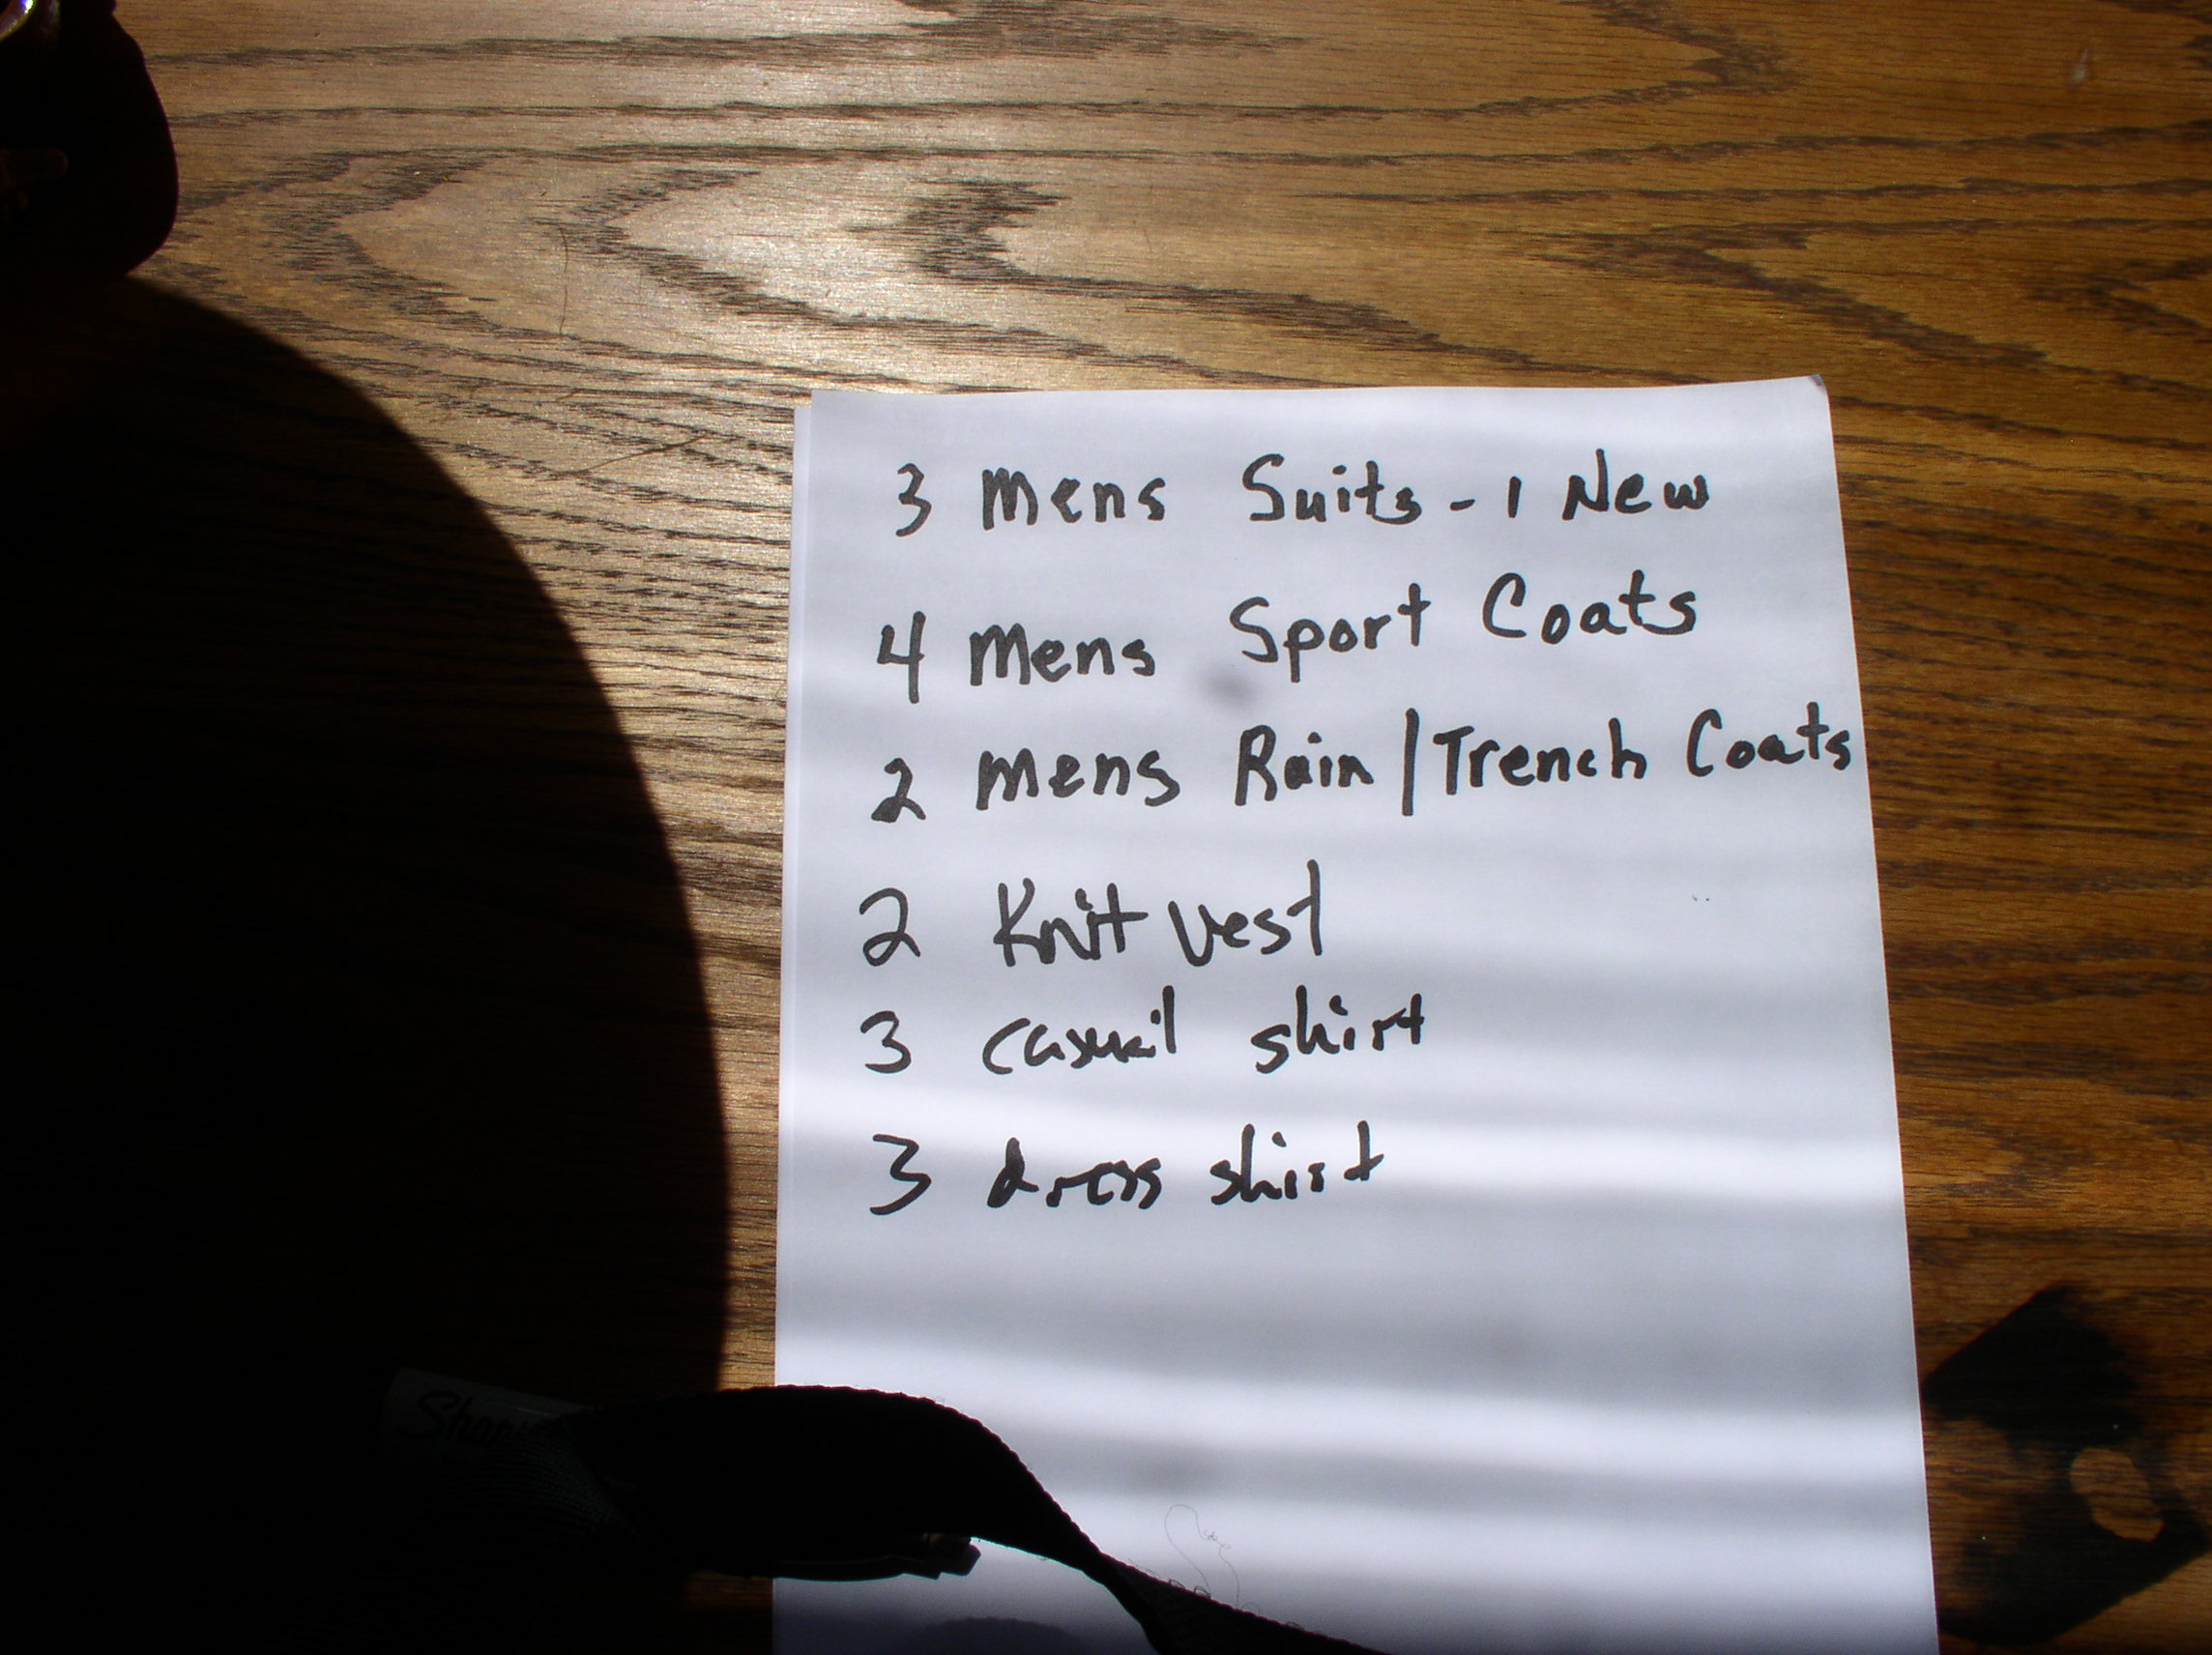 3 Mens Suits - 1 New
4 Mens Sport Coats
2 Mens Rain/Trench Coats
2 Knit Vest
3 casual shirt
3 dress shirt